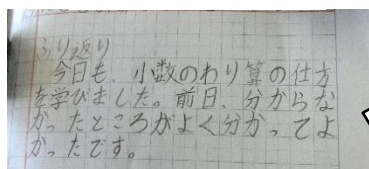 ふり返り
今日も、小数のわり算の仕方
を学びました。前日、分からな
かったところがよく分かってよ
かったです。